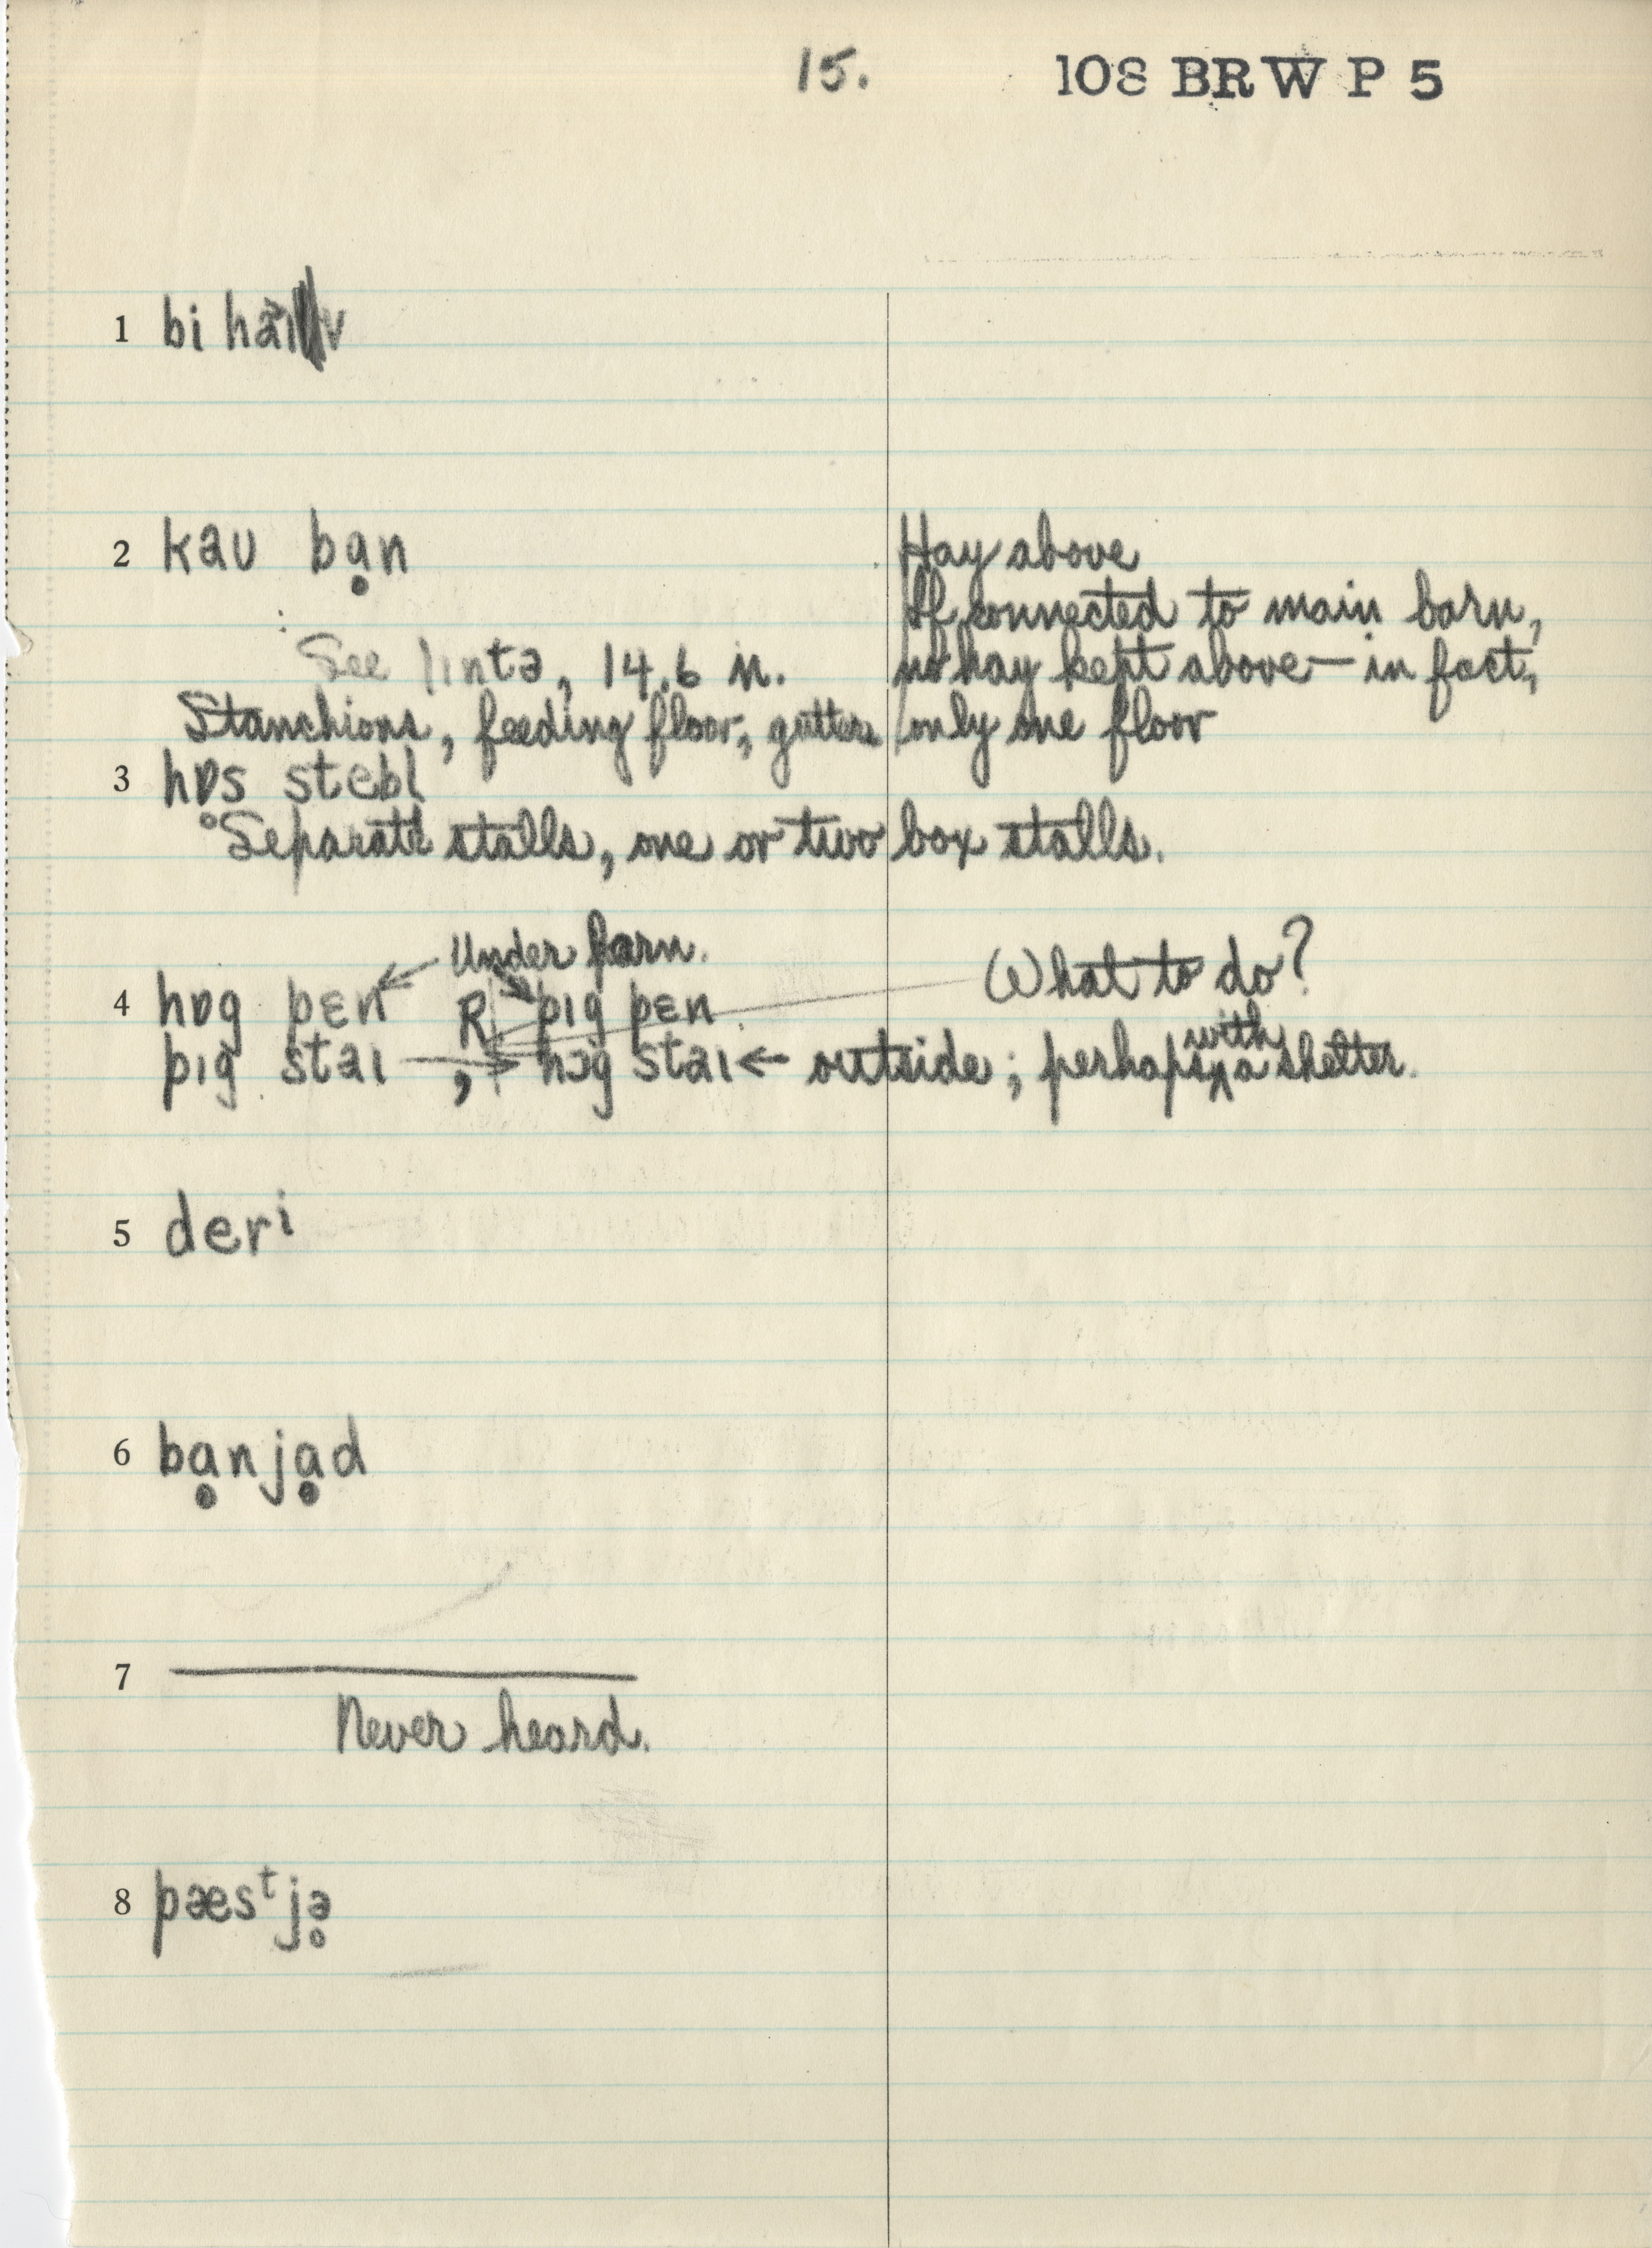 15. 108 BRW P 5
1 bi haɪv
2 kaʊ bạn Hay above
If connected to main barn,
See lintə, 14.6 n. no hay kept above — in fact,
Stanchions, feeding floor, gutters only one floor
3 hɒs stebl
Separate stalls, one or two box stalls.
Under barn.
What to do?
4 hɒg pɛn R pɪg pɛn
pɪg staɪ → , hɔg staɪ ← outside; perhaps with a shelter.
5 derⁱ
6 bạnjạd
7 ———
Never heard.
8 pæsᵗjə̥